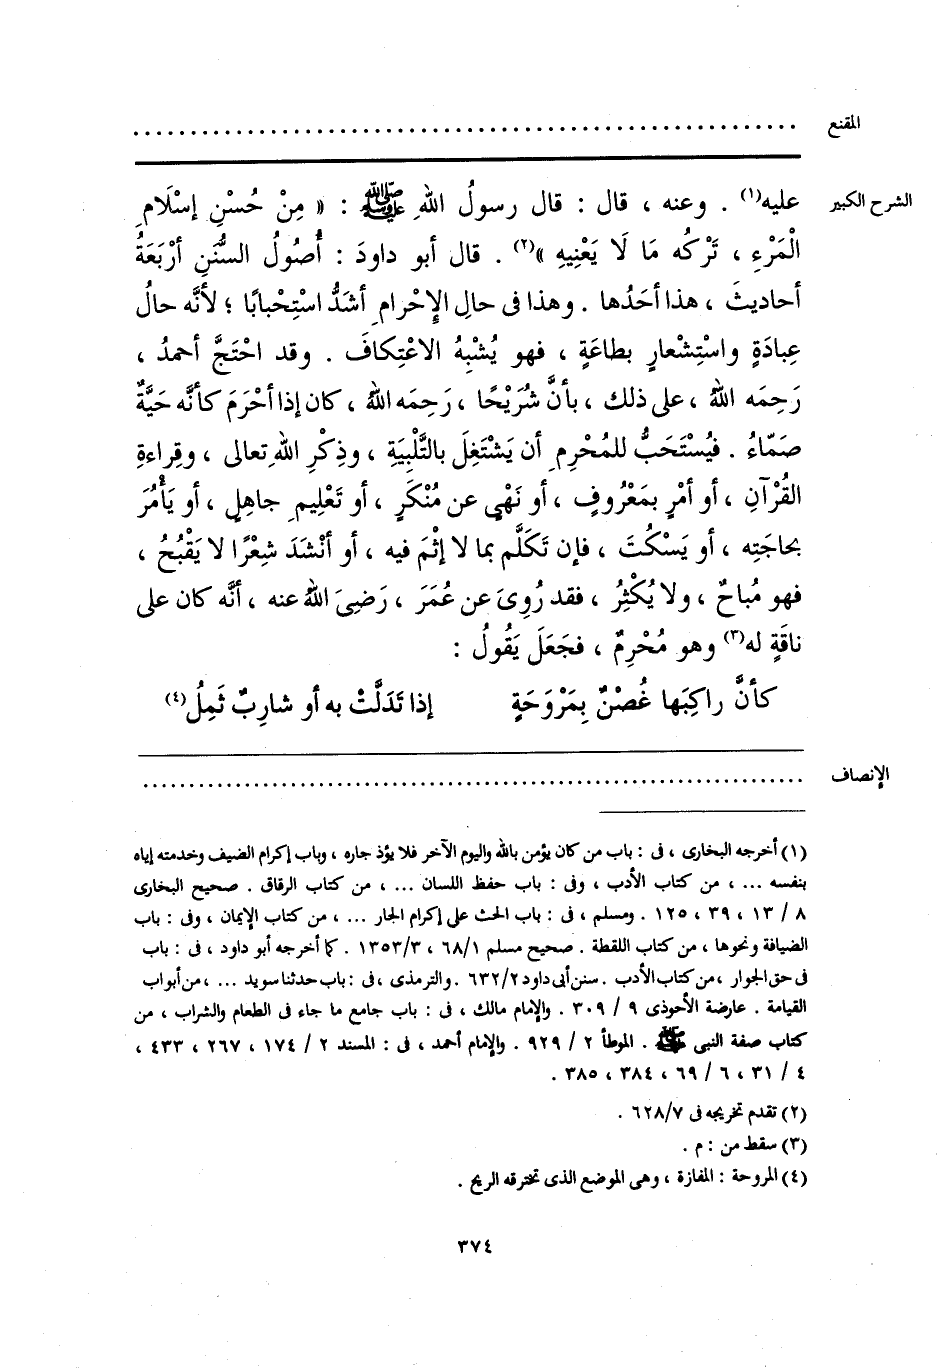 المقنع ............................................................
الشرح الكبير عليه(١) . وعنه ، قال : قال رسولُ اللهِ ﷺ : « مِنْ حُسْنِ إسْلَامِ
الْمَرْءِ ، تَرْكُه مَا لَا يَعْنِيهِ »(٢) . قال أبو داودَ : أُصُولُ السُّنَنِ أرْبَعَةُ
أحاديثَ ، هذا أحَدُها . وهذا فى حالِ الإِحْرامِ أشَدُّ اسْتِحْبابًا ؛ لأنَّه حالُ
عِبادَةٍ واسْتِشْعارٍ بطاعَةٍ ، فهو يُشْبِهُ الاعْتِكافَ . وقد احْتَجَّ أحمدُ ،
رَحِمَه اللهُ ، على ذلك ، بأنَّ شُرَيْحًا ، رَحِمَه اللهُ ، كان إذا أحْرَمَ كأنَّه حَيَّةٌ
صَمّاءُ . فيُسْتَحَبُّ للمُحْرِمِ أن يَشْتَغِلَ بالتَّلْبِيَةِ ، وذِكْرِ اللهِ تعالى ، وقِراءةِ
القُرْآنِ ، أو أمْرٍ بمَعْرُوفٍ ، أو نَهْىٍ عن مُنْكَرٍ ، أو تَعْلِيمِ جاهِلٍ ، أو يَأْمُرَ
بحاجَتِه ، أو يَسْكُتَ ، فإن تَكَلَّم بما لا إثْمَ فيه ، أو أنْشَدَ شِعْرًا لا يَقْبُحُ ،
فهو مُباحٌ ، ولا يُكْثِرُ ، فقد رُوِىَ عن عُمَرَ ، رَضِىَ اللهُ عنه ، أنَّه كان على
ناقَةٍ له(٣) وهو مُحْرِمٌ ، فجَعَلَ يَقُولُ :
كأنَّ راكِبَها غُصْنٌ بِمَرْوَحَةٍ إذا تَدَلَّتْ به أو شارِبٌ ثَمِلُ(٤)
الإنصاف ............................................................
(١) أخرجه البخارى ، فى : باب من كان يؤمن بالله واليوم الآخر فلا يؤذ جاره ، وباب إكرام الضيف وخدمته إياه
بنفسه ... ، من كتاب الأدب ، وفى : باب حفظ اللسان ... ، من كتاب الرقاق . صحيح البخارى
٨ / ١٣ ، ٣٩ ، ١٢٥ . ومسلم ، فى : باب الحث على إكرام الجار ... ، من كتاب الإيمان ، وفى : باب
الضيافة ونحوها ، من كتاب اللقطة . صحيح مسلم ٦٨/١ ، ١٣٥٣/٣ . كما أخرجه أبو داود ، فى : باب
فى حق الجوار ، من كتاب الأدب . سنن أبى داود ٦٣٢/٢ . والترمذى ، فى : باب حدثنا سويد ... ، من أبواب
القيامة . عارضة الأحوذى ٩ / ٣٠٩ . والإمام مالك ، فى : باب جامع ما جاء فى الطعام والشراب ، من
كتاب صفة النبى ﷺ . الموطأ ٢ / ٩٢٩ . والإمام أحمد ، فى : المسند ٢ / ١٧٤ ، ٢٦٧ ، ٤٣٣ ،
٤ / ٣١ ، ٦ / ٦٩ ، ٣٨٤ ، ٣٨٥ .
(٢) تقدم تخريجه فى ٦٢٨/٧ .
(٣) سقط من : م .
(٤) المروحة : المفازة ، وهى الموضع الذى تخترقه الريح .
٣٧٤